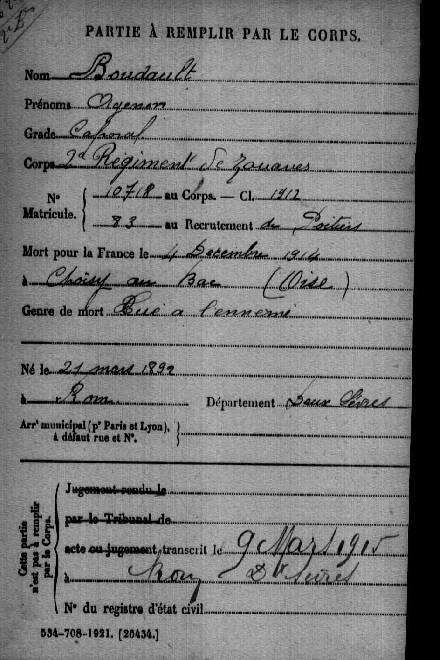 PARTIE À REMPLIR PAR LE CORPS.
Nom Boudault
Prénoms Agenor
Grade Caporal
Corps 2e Régiment de Zouaves
N° Matricule. 10718 au Corps. — Cl. 1912
83 au Recrutement de Poitiers
Mort pour la France le 4 Décembre 1914
à Choisy au Bac (Oise)
Genre de mort Tué à l'ennemi
Né le 21 mars 1892
à Rom Département Deux Sèvres
Arrt municipal (pr Paris et Lyon),
à défaut rue et N°.
Cette partie n'est pas à remplir par le Corps.
Jugement rendu le
par le Tribunal de
acte ou jugement transcrit le 9 Mars 1915
à Rom Dx Sèvres
N° du registre d'état civil
534-708-1921. [26434.]